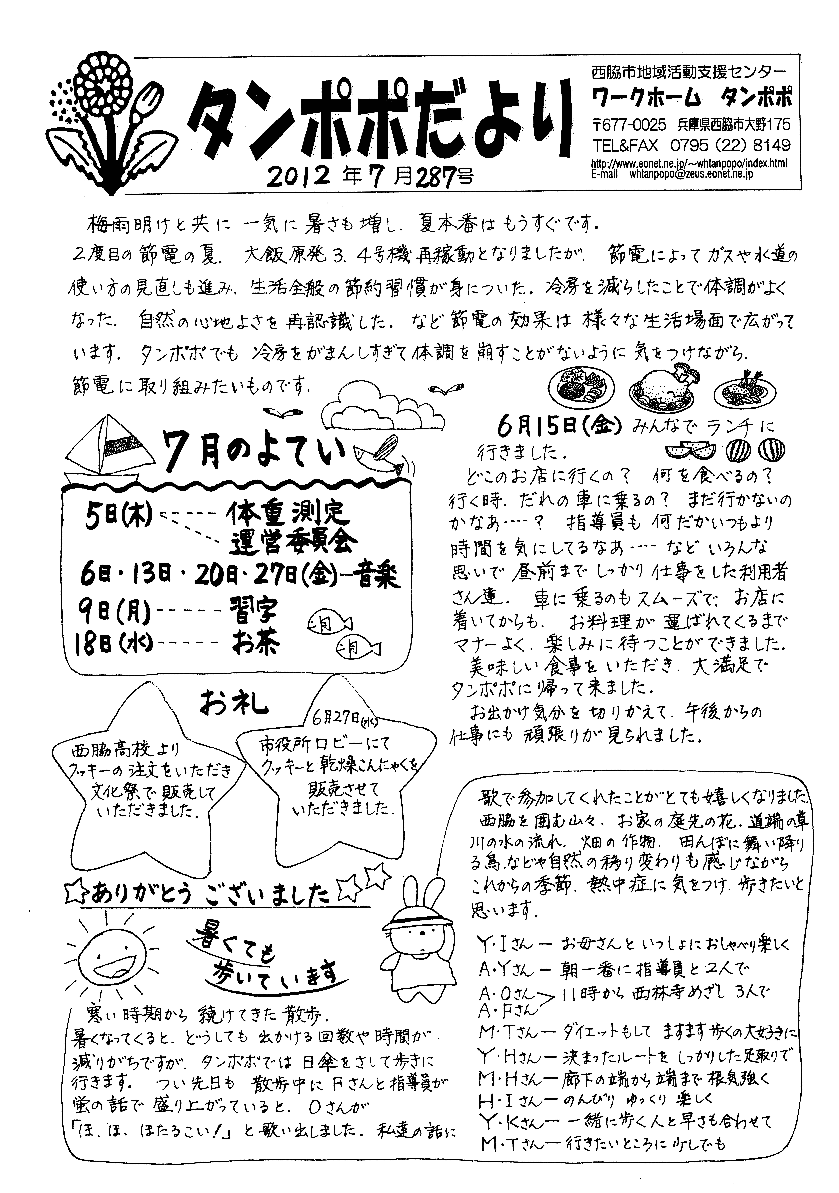 タンポポだより
2012年7月287号
西脇市地域活動支援センター
ワークホーム タンポポ
〒677-0025 兵庫県西脇市大野175
TEL&FAX 0795(22)8149
http://www.eonet.ne.jp/~whtanpopo/index.html
E-mail whtanpopo@zeus.eonet.ne.jp
梅雨明けと共に 一気に暑さも増し、夏本番はもうすぐです。
2度目の節電の夏、大飯原発3.4号機再稼動となりましたが、節電によってガスや水道の
使い方の見直しも進み、生活全般の節約習慣が身についた。冷房を減らしたことで体調がよく
なった。自然の心地よさを再認識した。など節電の効果は様々な生活場面で広がって
います。タンポポでも冷房をがまんしすぎて体調を崩すことがないように気をつけながら、
節電に取り組みたいものです。
7月のよてい
5日(木)----体重測定
運営委員会
6日・13日・20日・27日(金)--音楽
9日(月)-----習字
18日(水)----お茶
6月15日(金)みんなでランチに
行きました。
どこのお店に行くの? 何を食べるの?
行く時、だれの車に乗るの? まだ行かないの
かなあ‥‥? 指導員も何だかいつもより
時間を気にしてるなあ‥‥などいろんな
思いで昼前までしっかり仕事をした利用者
さん達。車に乗るのもスムーズで、お店に
着いてからも、お料理が運ばれてくるまで
マナーよく、楽しみに待つことができました。
美味しい食事をいただき、大満足で
タンポポに帰って来ました。
お出かけ気分を切りかえて、午後からの
仕事にも頑張りが見られました。
お礼
西脇高校より
クッキーの注文をいただき
文化祭で販売して
いただきました。
6月27日(水)
市役所ロビーにて
クッキーと乾燥こんにゃくを
販売させて
いただきました。
ありがとうございました
暑くても
歩いています
寒い時期から続けてきた散歩。
暑くなってくると、どうしても出かける回数や時間が
減りがちですが、タンポポでは日傘をさして歩きに
行きます。つい先日も散歩中にFさんと指導員が
蛍の話で盛り上がっていると、Oさんが
「ほ、ほ、ほたるこい!」と歌い出しました。私達の話に
歌で参加してくれたことがとても嬉しくなりました。
西脇を囲む山々、お家の庭先の花、道端の草
川の水の流れ、畑の作物、田んぼに舞い降り
る鳥などや自然の移り変わりも感じながら
これからの季節、熱中症に気をつけ、歩きたいと
思います。
Y・Iさん－お母さんといっしょにおしゃべり楽しく
A・Yさん－朝一番に指導員と2人で
A・Oさん
A・Fさん＞11時から西林寺めざし3人で
M・Tさん－ダイエットもして ますます歩くの大好きに
Y・Hさん－決まったルートをしっかりした足取りで
M・Hさん－廊下の端から端まで根気強く
H・Iさん－のんびり ゆっくり 楽しく
Y・Kさん－一緒に歩く人と早さも合わせて
M・Tさん－行きたいところに少しでも